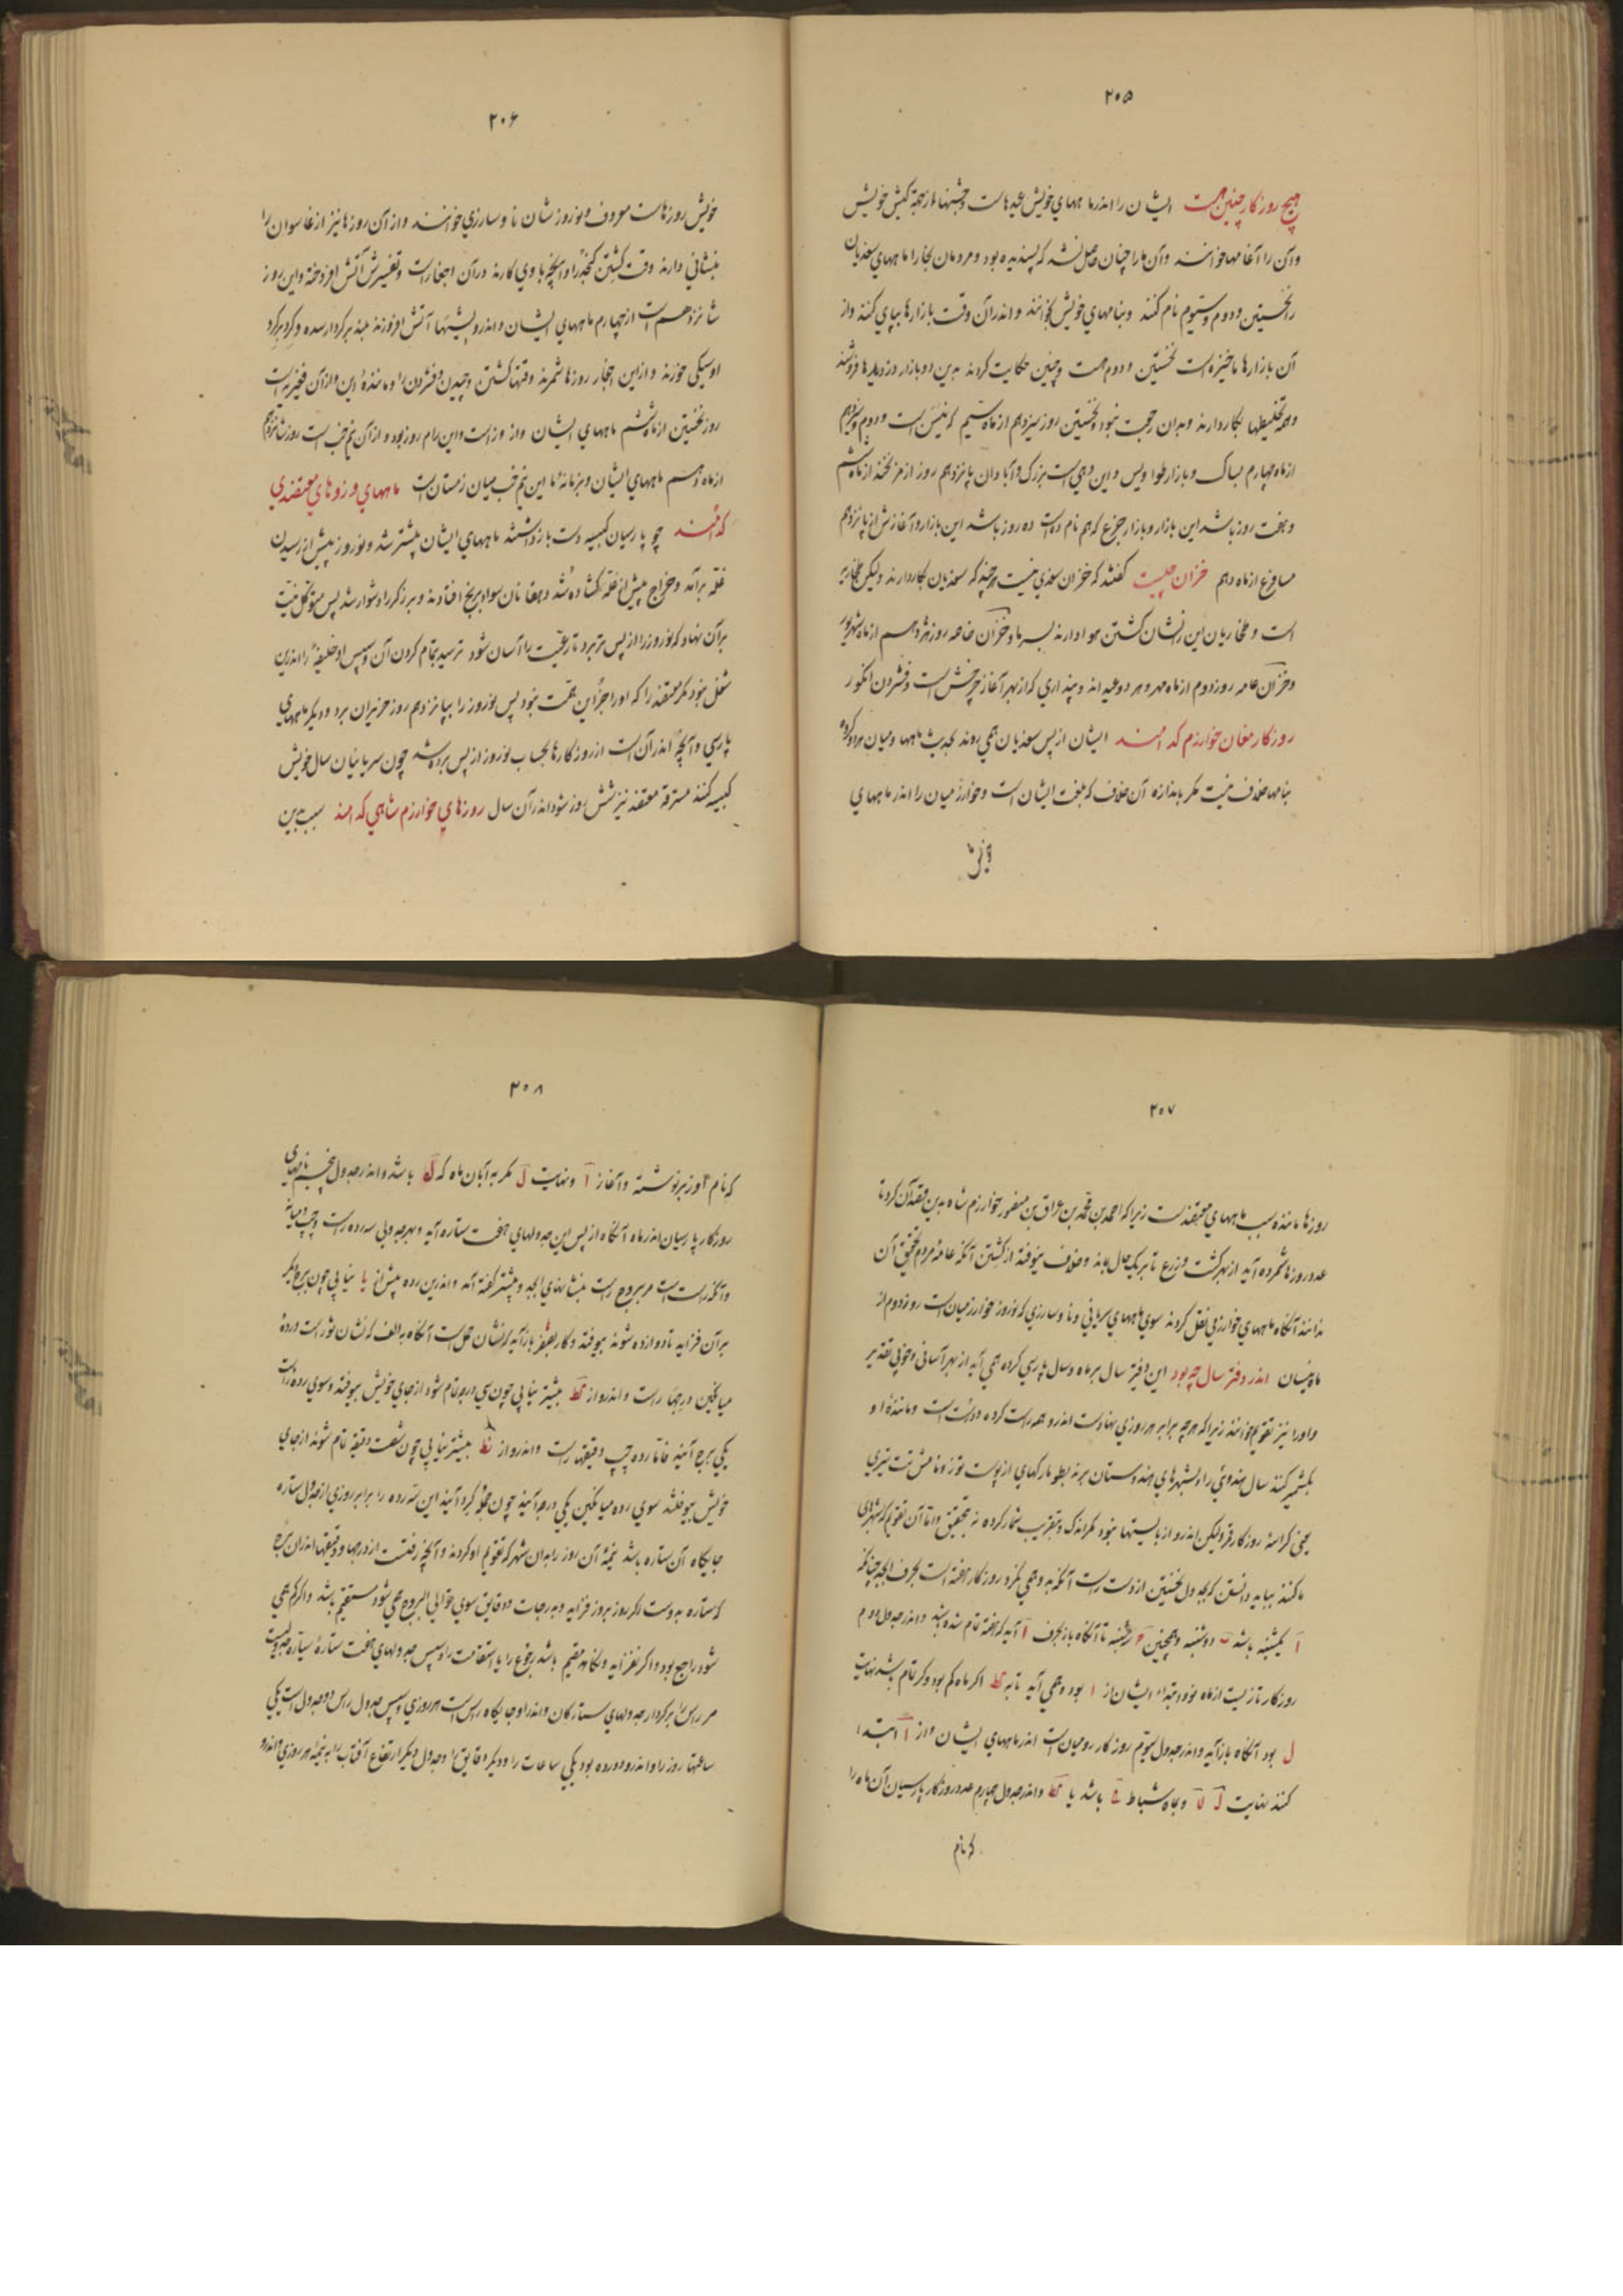 ۲۰۵
هیچ روزگار چنین هست ایشان را اندر ماههای خویش عیدهاست و جشنها از جهة کیش خویش
و آن را آغامها خوانند و آن ما را چنان حاصل نشد که پسندیده بود و مردمان بخارا ماههای سغدیان
را نخستین و دوم و سیّوم نام کنند و بنامهای خویش نخوانند و اندر آن وقت بازارها بپای کنند و از
آن بازارها ماخیره است نخستین و دوم هست و چنین حکایت کردند بدین دو بازار دزدیدها فروشند
و همه تخلیطها بکار دارند و بدان رجعت نبود نخستین روز سیزدهم از ماه سیّم که نیسن است و دوم
از ماه چهارم بساک و بازار طواویس و این دهی است بزرگ و آبادان پانزدهم روز از مزیخندا از ماه ششم
و هفت روز باشد این بازار و بازار جرغ که هم نام ده است ده روز باشد این بازار و آغازش از پانزدهم
مسافوغ از ماه دهم خزان چیست گفتند که خزان سغدی نیست هر چند که سغدیان بکار دارند ولیکن بخاریه
است و بخاریان این را نشان گشتن هوا دارند بسرما و خزان خاصه روز هژدهم از ماه شهریور
و خزان عامه روز دوم از ماه مهر و هر دو عیدند و پنداری که از بهر آغاز چرخشت است و فشردن انگور
روزگار مغان خوارزم کدامند ایشان از پس سغدیان همی روند بحدیث ماهها و میان هر دو گروه
بنامها خلاف نیست مگر باندازه آن خلاف که بلغت ایشان است و خوارزمیان را اندر ماههای
۲۰۶
خویش روزهاست معروف و نوروزشان ناوسارزی خوانند و از آن روزها نیز ازغاسوان را
بنشانی دارند وقت کشتن کنجد را و آنچه با وی کارند در آن اجغار است و تفسیرش آتش افروخته و این روز
شانزدهم است از چهارم ماههای ایشان و اندرو بشبها آتش افروزند بلند بر کردار سده و گرد بر گرد
او سیکی خورند و از این اجغار روزها شمرند وقتها کشتن و چیدن و فشردن را و مانندهٔ این و از آن فغبریه است
روز نخستین از ماه ششم ماههای ایشان و از وز است و این رام روز بود و از آن نیم خب است روز شانزدهم
از ماه دهم ماههای ایشان و بزمانه ما این نیم خب میان زمستان است ماههای و روزهای معتضدی
کدامند چو پارسیان کبیسه دست باز داشتند ماههای ایشان پیشتر شد و نوروز پیش از رسیدن
غله برآمد و خراج پیش از غله گشاده شد دهقانان سواد برنج افتادند و برزگر را دشوار شد پس متوکل نیّت
بر آن نهاد که نوروز را از پس تر برد تا رعیّت را آسان شود نرسید بتمام کردن آن و سپس او خلیفه را اندرین
شغل نبود مگر معتضد را که او را جز این همّت نبود پس نوروز را بیازدهم روز حزیران برد و دیگر ماههای
پارسی و آنچه اندر آن است از روزگارها بحساب نوروز از پس برده شد چون سریانیان سال خویش
کبیسه کنند مسترقهٔ معتضد نیز شش روز شود اندر آن سال روزهای خوارزم شاهی کدامند سبب بدین
۲۰۷
روزها مانندهٔ سبب ماههای معتضد است زیرا که احمد بن محمّد بن عراق بن منصور خوارزم شاه بدین قصد آن کرد تا
عدد روزها شمرده آید از بهر کشت و زرع تا بر یک حال بماند و خلاف نیوفتد از گشتن آنکه عامهٔ مردم تحقیق آن
ندانند آنگاه ماههای خوارزمی نقل کردند سوی ماههای سریانی و ناوسارزی که نوروز خوارزمیان است روز دوم از
ماه نیسان اندر دفتر سال چه بود این دفتر سال بر ماه و سال پارسی کرده همی آید از بهر آسانی و خوبی تقدیر
و او را نیز تقویم خوانند زیرا که هر چه برابر هر روزی نهاده است اندرو همه راست کرده و درست است و مانندهٔ او
بکشمیر کنند سال هندوی را و بشهرهای هندوستان برند بطومارهای از پوست توز و نامش تت بتری
یعنی کراسهٔ روزگار قمر ولیکن اندرو از بایستیها نبود مگر اندک و بتقریب شمار کرده نه بتحقیق و امّا آن تقویم که بشهرهای
ما کنند بباید دانستن که بجدول نخستین از دست راست آنکه بدو همی نگرد روزگار هفته است بحرف ابجد چنانکه
آ یکشنبه باشد ب دوشنبه و همچنین تا آنگاه باز بحرف آ آید که هفته تمام شده باشد و اندر جدول دوم
روزگار تازیست از ماه نو و ابتداء ایشان از ا بود و همی آید تا به کط اگر ماه کم بود و گر تمام باشد نهایت
ل بود آنگاه باز آید و اندر جدول سیّوم روزگار رومیان است اندر ماههای ایشان و از آ ابتدا
کنند نهایت ل لا و بماه شباط کح باشد یا کط و اندر جدول چهارم عدد روزگار پارسیان آن ماه را
که نام
۲۰۸
که نام او زبر نوشته و آغاز آ و نهایت ل مگر به آبان ماه که له باشد و اندر جدول پنجم نامهای
روزگار پارسیان اندر ماه آنگاه از پس این جدولهای هفت ستاره آید و بهر جدولی سه رده راست و چپ و میانه
و آنکه راست است مر بروج راست بنشانهای ابجد و پیشتر گفته آمد و اندرین رده پیش از یا نیابی چون برج دیگر
بر آن فزاید تا دوازده شوند بیوفتد و کار بصفر باز آید که نشان حمل است آنگاه به الف که نشان ثور است و ردهٔ
میانگین درجها راست و اندرو از کط بیشتر نیابی چون سی درجه تمام شود از جای خویش بیوفتد و سوی رده راست
یکی برج آیند فامّا رده چپ دقیقها راست و اندرو از نط بیشتر نیابی چون شصت دقیقه تمام شوند از جای
خویش بیوفتند سوی رده میانگین یکی درجه آیند چون جمله گرد آیند این سه رده را برابر روزی از جدول ستاره
جایگاه آن ستاره باشد نیمهٔ آن روز را بدان شهر که تقویم او کردند و آنچه رفت از درجها و دقیقها اندر آن برج
که ستاره بدوست اگر روز بروز فزاید و به درجات و دقایق سوی توالی البروج همی شود مستقیم باشد و اگر کم همی
شود راجع بود و اگر نفزاید و نکاهد مقیم باشد رجوع را یا استقامت را و سپس جدولهای هفت ستارهٔ سیّاره جدولیست
مر راس را بر کردار جدولهای ستارگان و اندر او جایگاه راس است هر روزی و سپس جدول راس دو جدول است یکی
ساعتها روز را و اندرو دو رده بود یکی ساعات را و دیگر دقایق را و جدول دیگر ارتفاع آفتاب را به نیمهٔ هر روزی و اندرو